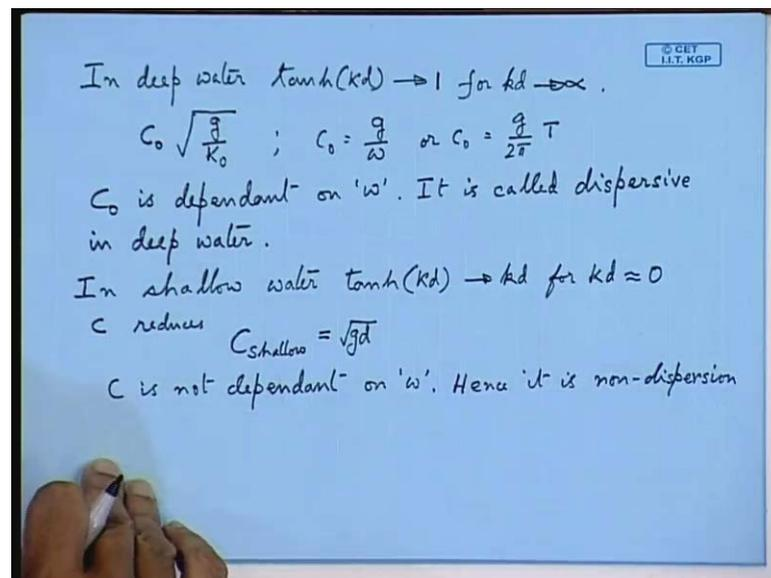 © CET
I.I.T. KGP
In deep water tanh(kd) → 1 for kd → ∝.
C₀ √(g/K₀) ; C₀ = g/ω or C₀ = g/2π T
C₀ is dependant on 'ω'. It is called dispersive
in deep water.
In shallow water tanh(kd) → kd for kd ≈ 0
C reduces C shallow = √gd
C is not dependant on 'ω'. Hence it is non-dispersion